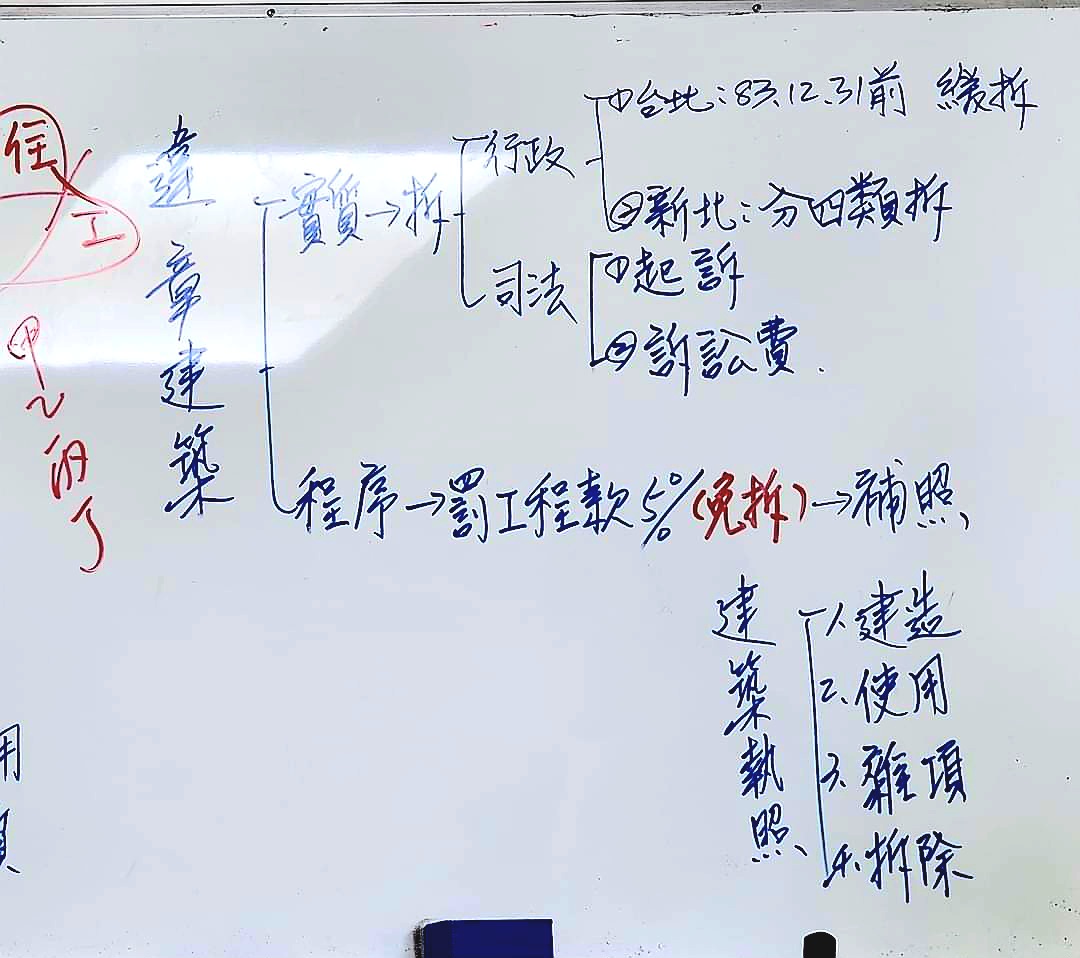 住
工
甲
乙
丙
丁
違章建築
實質→拆
行政
①台北:83.12.31前 緩拆
②新北:分四類拆
司法
①起訴
②訴訟費.
程序→罰工程款5%(免拆)→補照
建築執照
1.建造
2.使用
3.雜項
4.拆除
用